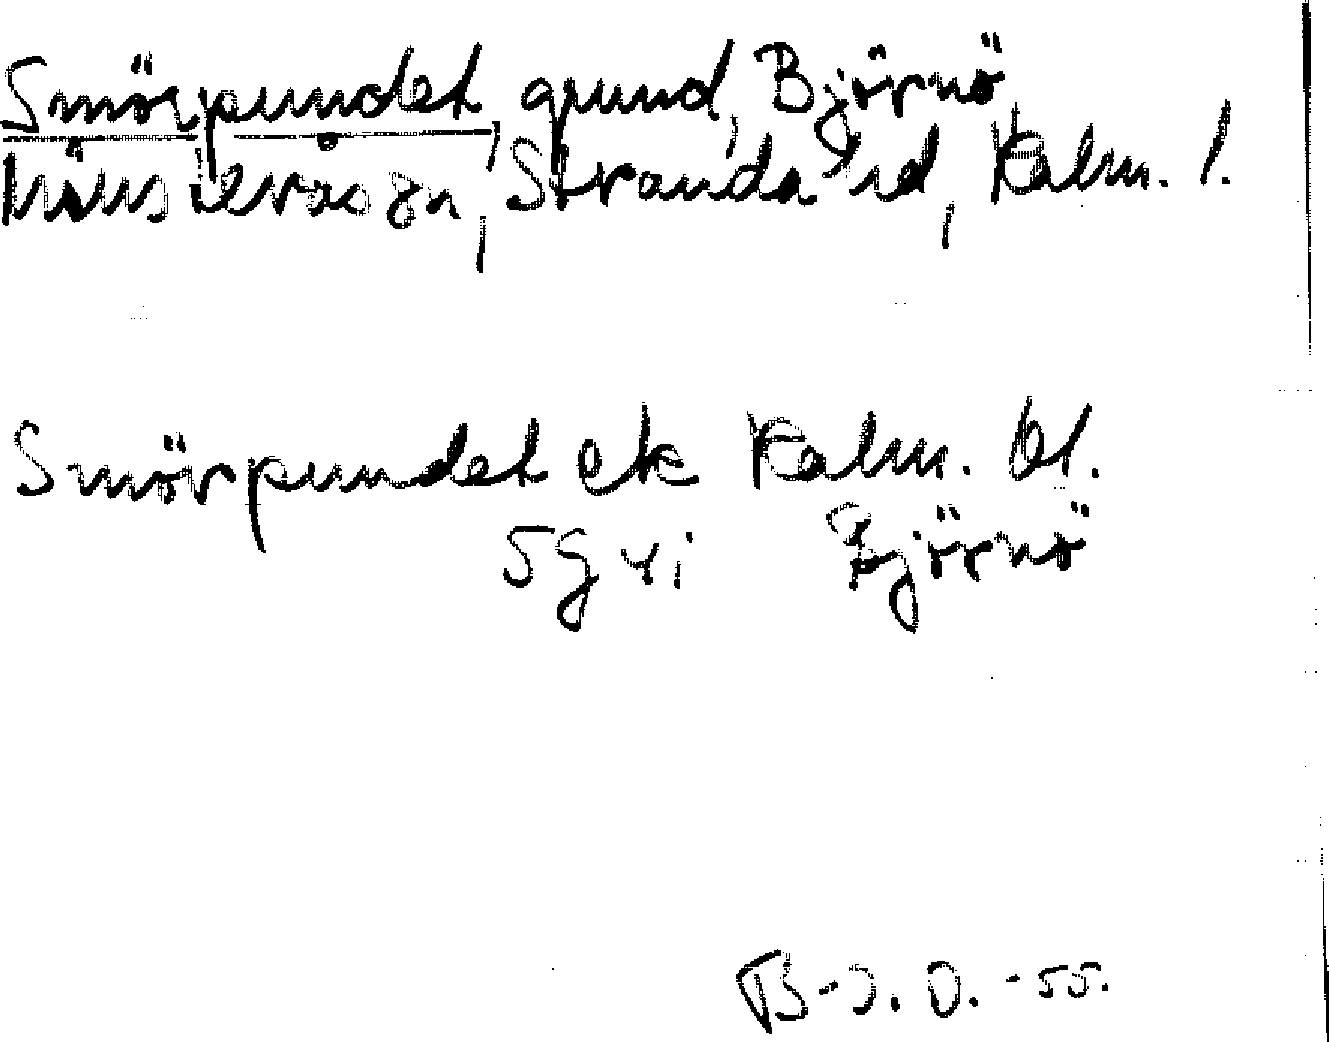 Smörpundet, grund, Björnö
Mönsterås sn, Stranda hd, Kalm. l.
Smörpundet ek Kalm. bl.
5g vi Björnö
B-J. O. -55.